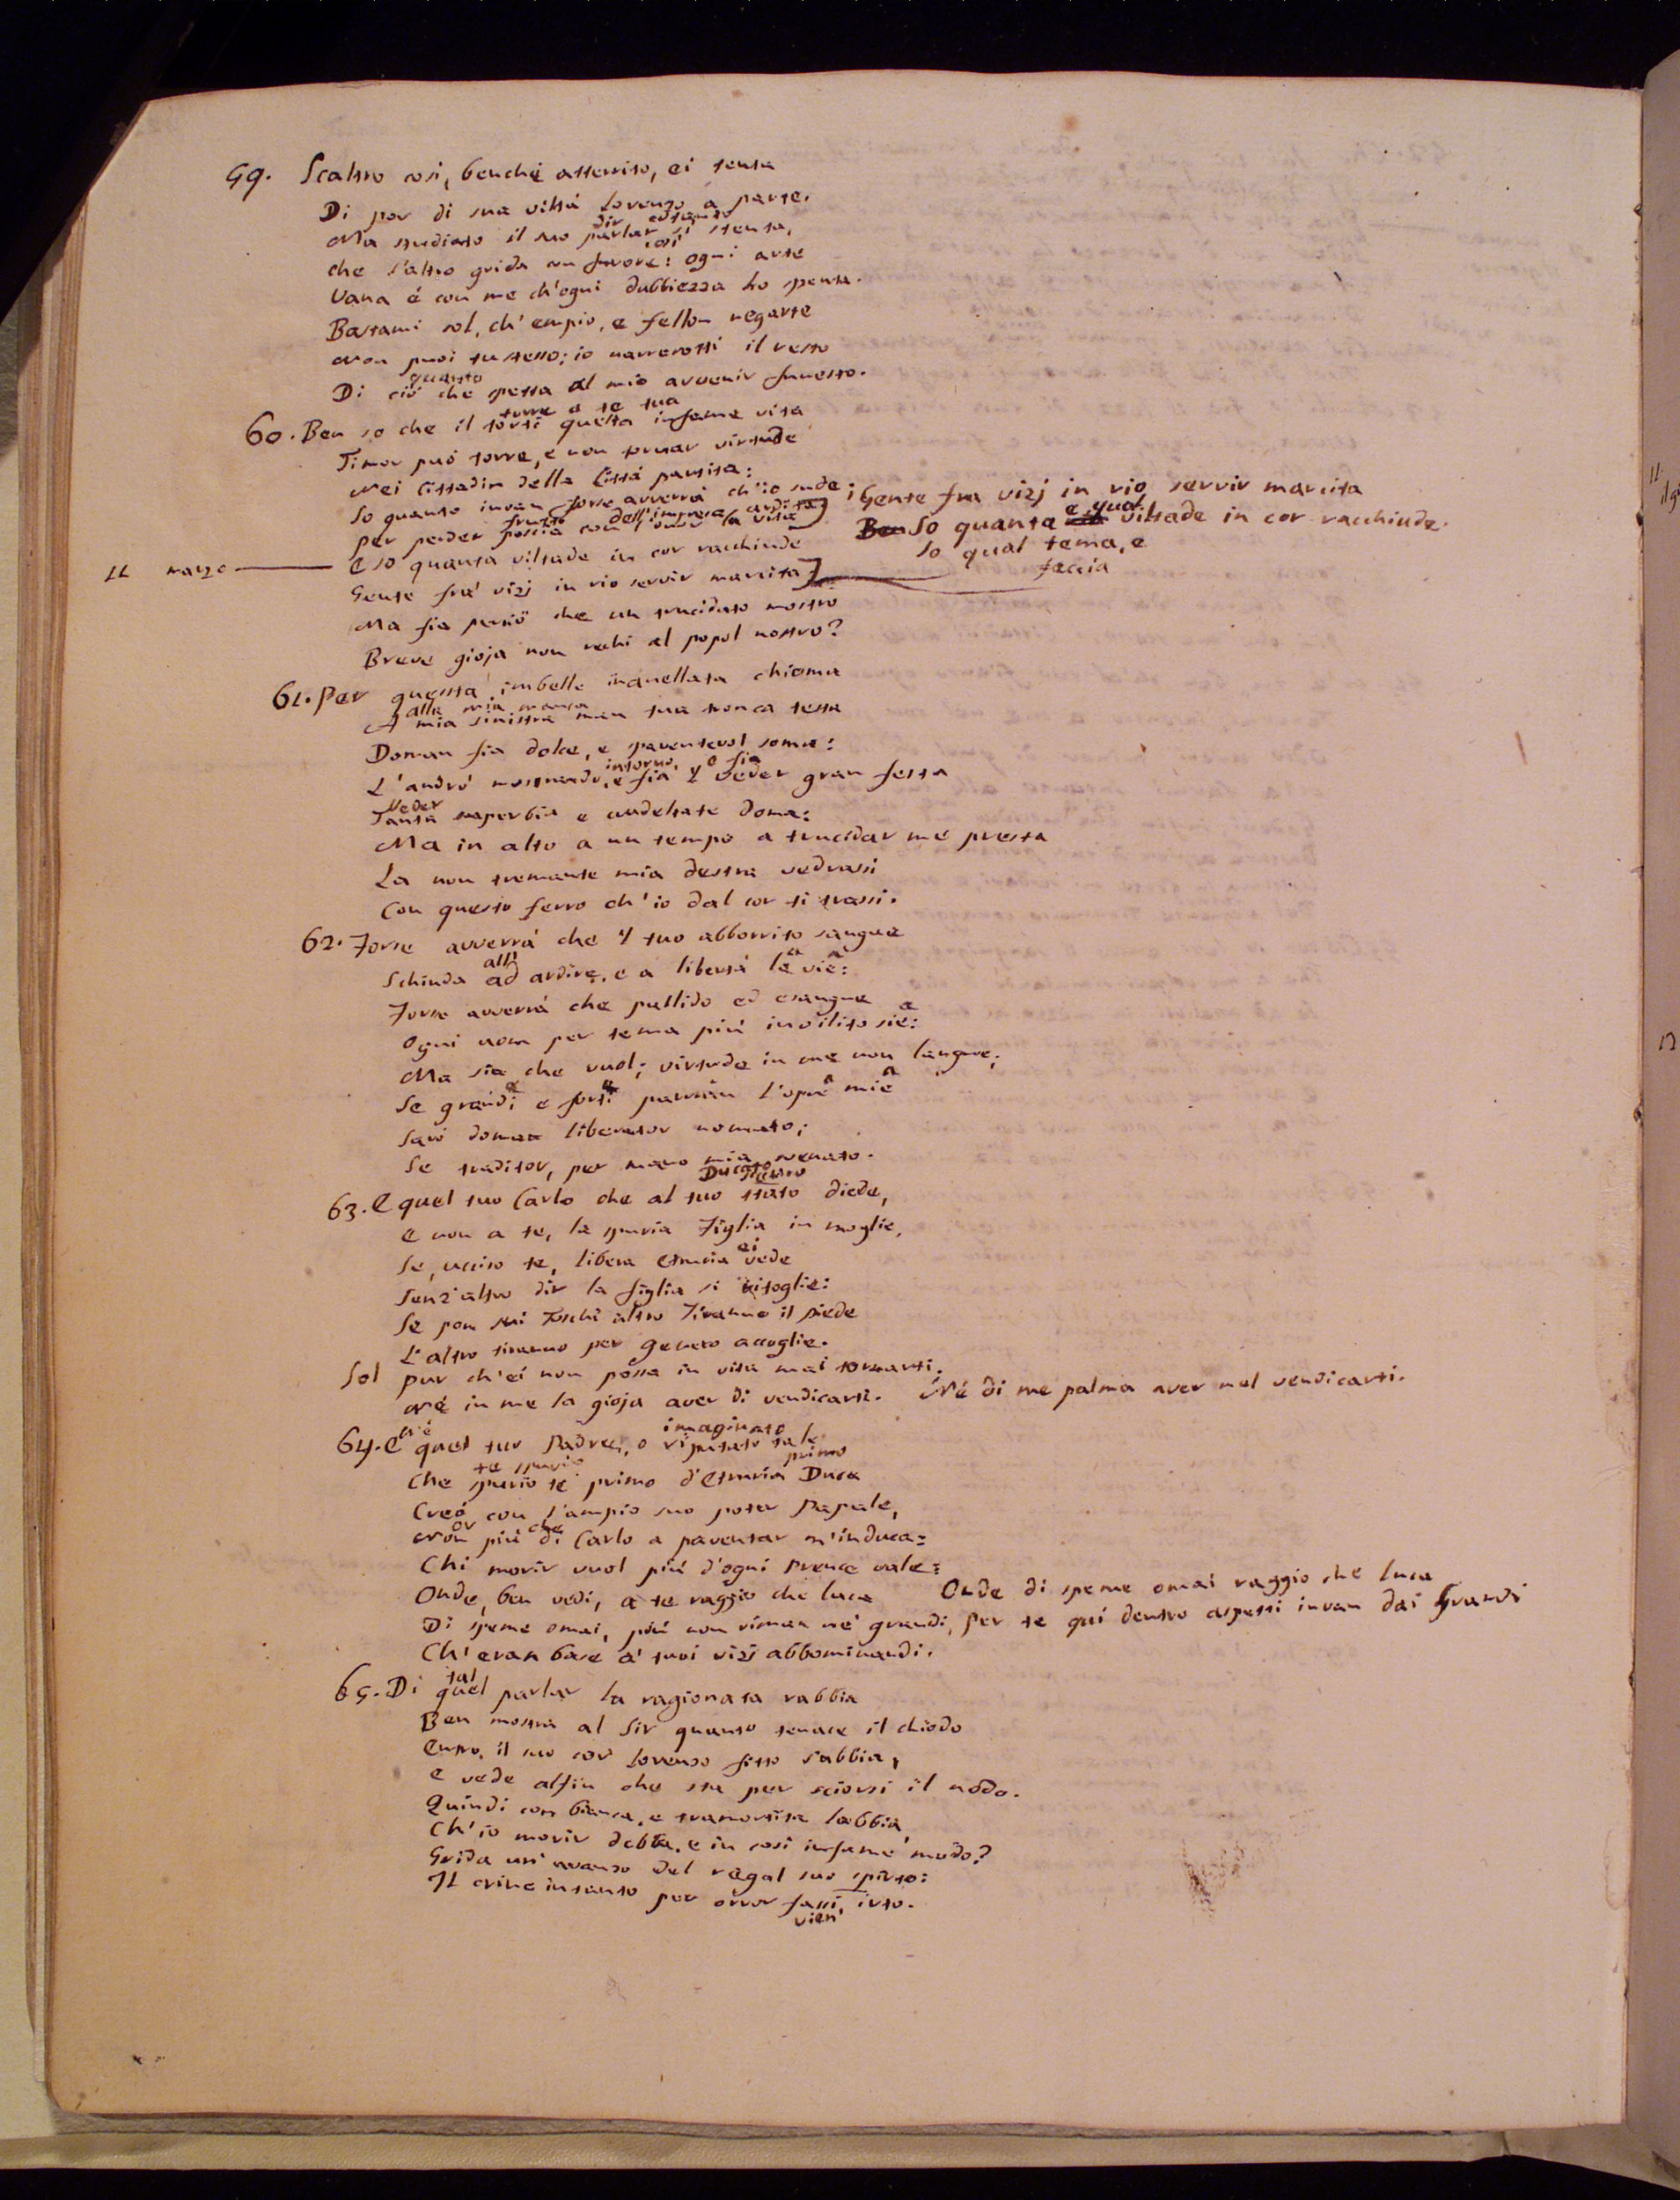 59. Scaltro così, benchè atterrito, ei tenta
Di por di sua viltá Lorenzo a parte.
dir ed tanto
Ma studiato il suo parlar sì stenta,
così
che l'altro grida con furore: ogni arte
Vana é con me ch'ogni dubbiezza ho spenta.
Bastami sol, ch'empio, e fellon negarte
Non puoi tu stesso; io narrerotti il resto
quanto
Di ció che spetta al mio avvenir funesto.
torre a te tua
60. Ben so che il torti questa infame vita
Timor puó torre, e non tornar virtude
Nei Cittadin della Cittá partita:
So quanto invan forse avverrá ch'io sude;
frutto dell'impresa ardita
per perder poscia con l'onor la vita
E so quanta viltade in cor racchiude
11 marzo
Gente fra' vizj in rio servir marcita
Ma fia perció che un trucidato mostro
Breve gioja non rechi al popol nostro?
Gente fra vizj in rio servir marcita
e qual
Ben So quanta viltade in cor racchiude.
so qual tema, e
faccia
61. Per questa imbelle inanellata chioma
alla mia manca
A mia sinistra man tua tronca testa
Doman fia dolce, e paventevol soma:
intorno, e fia
L'andró mostrando, e fia 'l veder gran festa
Veder
Tanta superbia e crudeltate doma:
Ma in alto a un tempo a trucidar me presta
La non tremante mia destra vedrassi
Con questo ferro ch'io dal cor ti trassi.
62. Forse avverrá che 'l tuo abborrito sangue
all'
Schiuda ad ardire, e a libertá la via:
Forse avverrá che pallido ed esangue
Ogni uom per tema piú invilito sia:
Ma sia che vuol; virtude in me non langue;
Se grande e forte parran l'opra mia
Saró doman liberator nomato;
Se traditor, per mano mia svenato.
Ducato
63. E quel tuo Carlo che al tuo stato diede,
E non a te, la spuria Figlia in moglie,
ei
Se, ucciso te, libera Etruria vede
Senz'altro dir la figlia si ritoglie:
Se pon sui Toschi altro Tiranno il piede
L'altro tiranno per Genero accoglie.
Sol pur ch'ei non possa in vita mai tornarti,
Né in me la gioja aver di vendicarti. Né di me palma aver nel vendicarti.
Né imaginato
64. E quel tuo Padre, o riputato tale
te spurio primo
Che spurio te primo d'Etruria Duca
Creó con l'ampio suo poter Papale,
or che
Non piú di Carlo a paventar m'induca:
Chi morir vuol piú d'ogni Prence vale:
Onde, ben vedi, a te raggio che luca
Di speme omai, piú non riman né grandi,
Ch'eran base a' tuoi vizj abbominandi.
Onde di speme omai raggio che luca
Per te quí dentro aspetti invan dai Grandi
tal
65. Di quel parlar la ragionata rabbia
Ben mostra al Sir quanto tenace il chiodo
Entro il suo cor Lorenzo fitto s'abbia,
E vede alfin che sta per sciorsi il nodo.
Quindi con bianca, e tramortita labbia
Ch'io morir debba, e in cosí infame modo?
Grida un' avanzo del regal suo spirto:
Il crine intanto per orror fassi irto.
vien